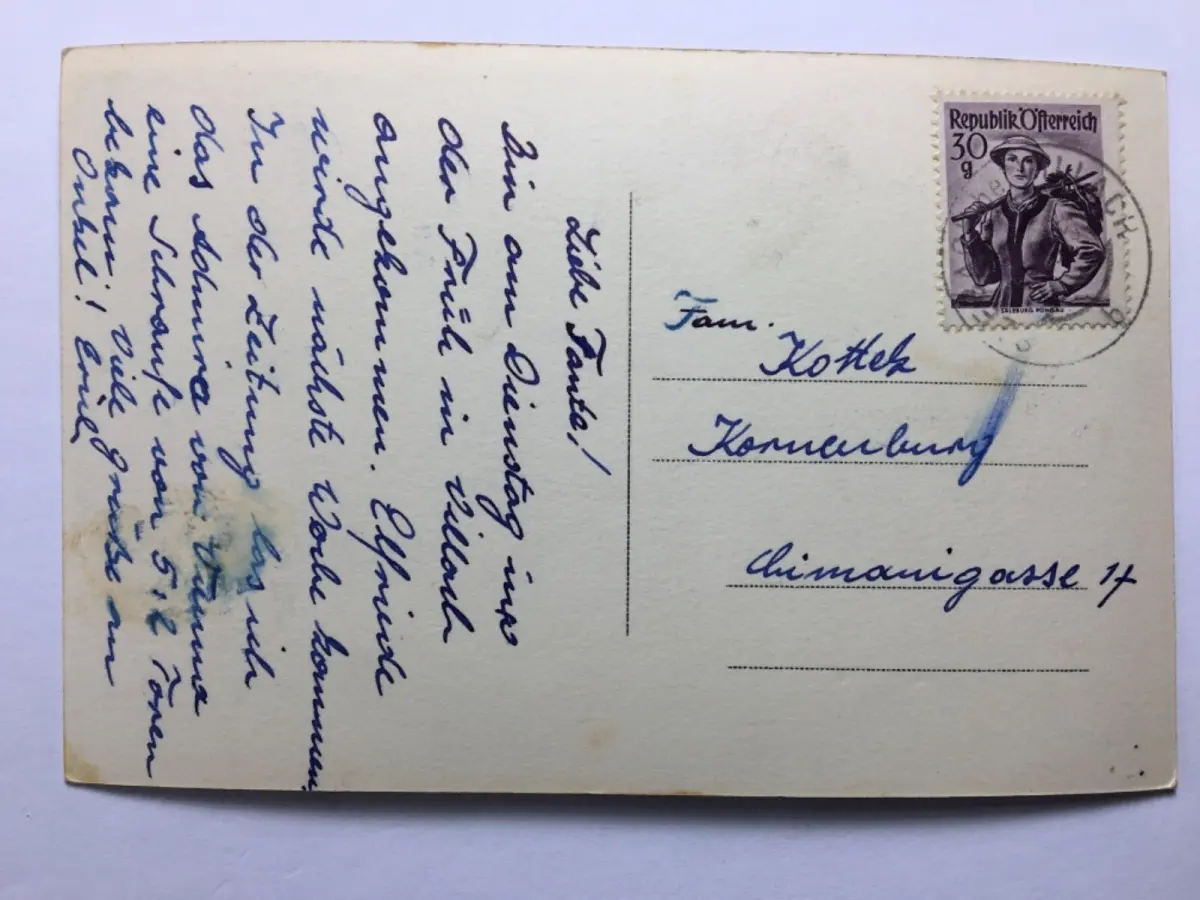 Liebe Tante!
Bin am Dienstag um
der Früh in Villach
angekommen. Elfriede
wird nächste Woche kommen.
In der Zeitung las ich
das Admira von Vienna
eine Schraufe von 5:2 Toren
bekam! Viele Grüße an
Onkel! Emil
Republik Österreich
30
g
SALZBURG PONGAU
VILLACH
Fam.
Kottek
Korneuburg
Chimanigasse 17